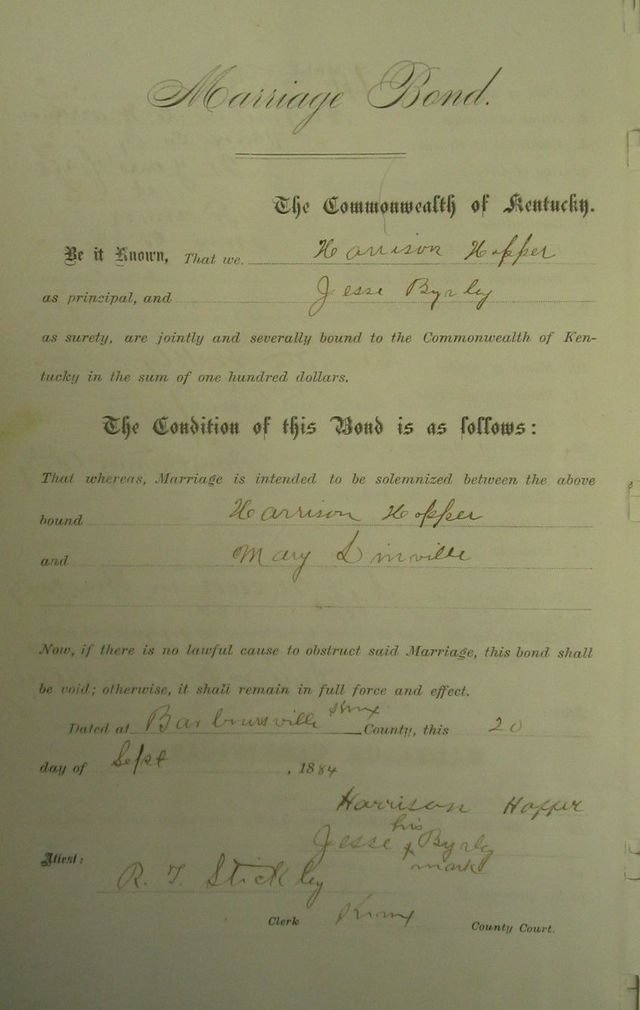 Marriage Bond.
The Commonwealth of Kentucky.
Be it Known, That we Harrison Hopper
as principal, and Jesse Byrley
as surety, are jointly and severally bound to the Commonwealth of Ken-
tucky in the sum of one hundred dollars.
The Condition of this Bond is as follows:
That whereas, Marriage is intended to be solemnized between the above
bound Harrison Hopper
and Mary Linville
Now, if there is no lawful cause to obstruct said Marriage, this bond shall
be void; otherwise, it shall remain in full force and effect.
Dated at Barboursville Knox County, this 20
day of Sept, 1884
Harrison Hopper
his
Jesse x Byrley
mark
Attest:
R. T. Stickley
Clerk Knox County Court.